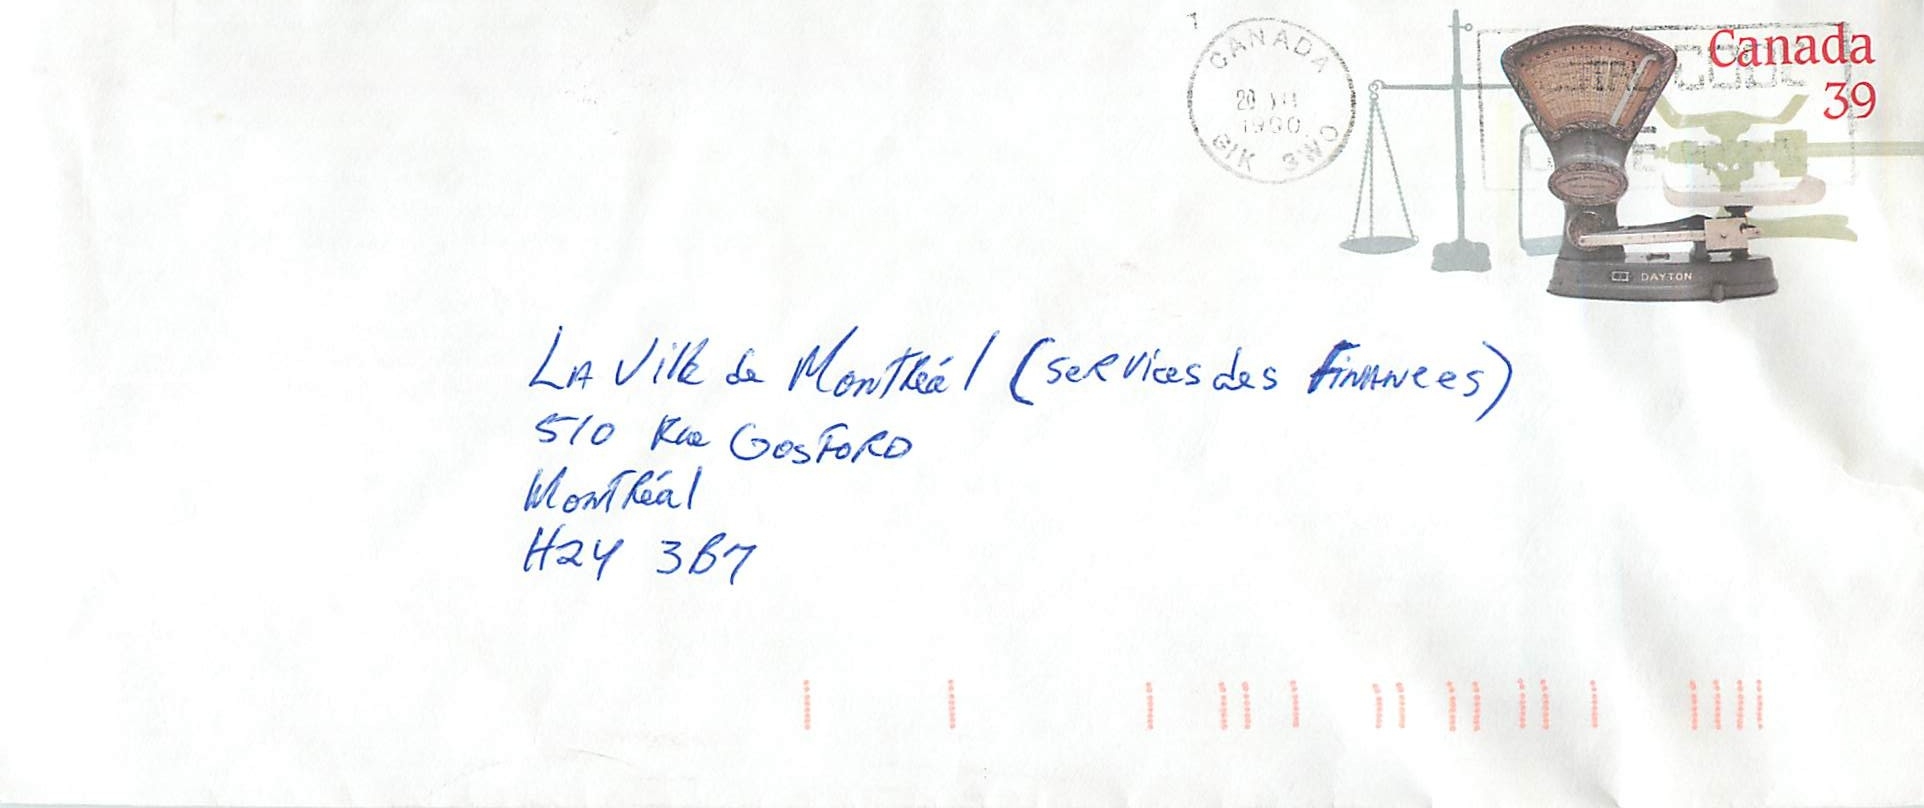 CANADA
20 VII
1990
G1K 3W0
Canada
39
CODE
DAYTON
LA Ville de Montréal (services des Finances)
510 Rue Gosford
Montréal
H2Y 3B7